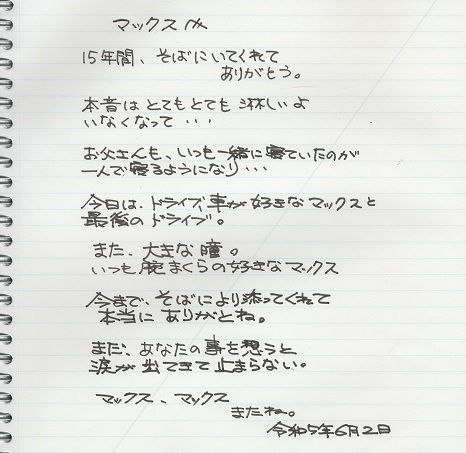 マックスへ
15年間、そばにいてくれて
ありがとう。
本音はとてもとても淋しいよ
いなくなって・・・
お父さんも、いつも一緒に寝ていたのが
一人で寝るようになり・・・
今日は、ドライブ、車が好きなマックスと
最後のドライブ。
また、大きな瞳。
いつも腕まくらの好きなマックス
今まで、そばにより添ってくれて
本当にありがとね。
まだ、あなたの事を想うと
涙が出てきて止まらない。
マックス、マックス
またね。
令和5年6月2日